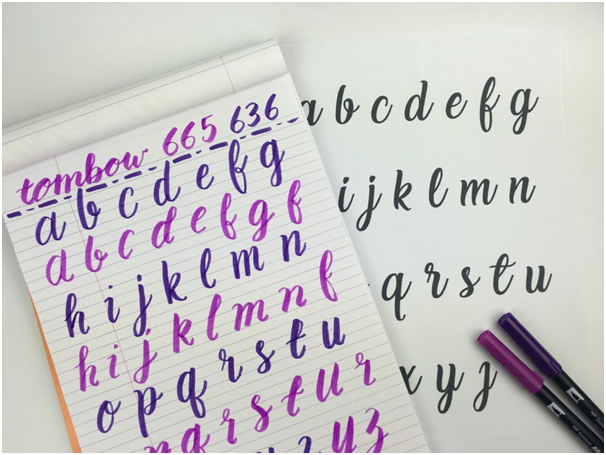 tombow 665 636
a b c d e f g
a b c d e f g f
h i j k l m n
h i j k l m n f
o p q r s t u
q r s t u r
y z
a b c d e f g
i j k l m n
q r s t u
x y z